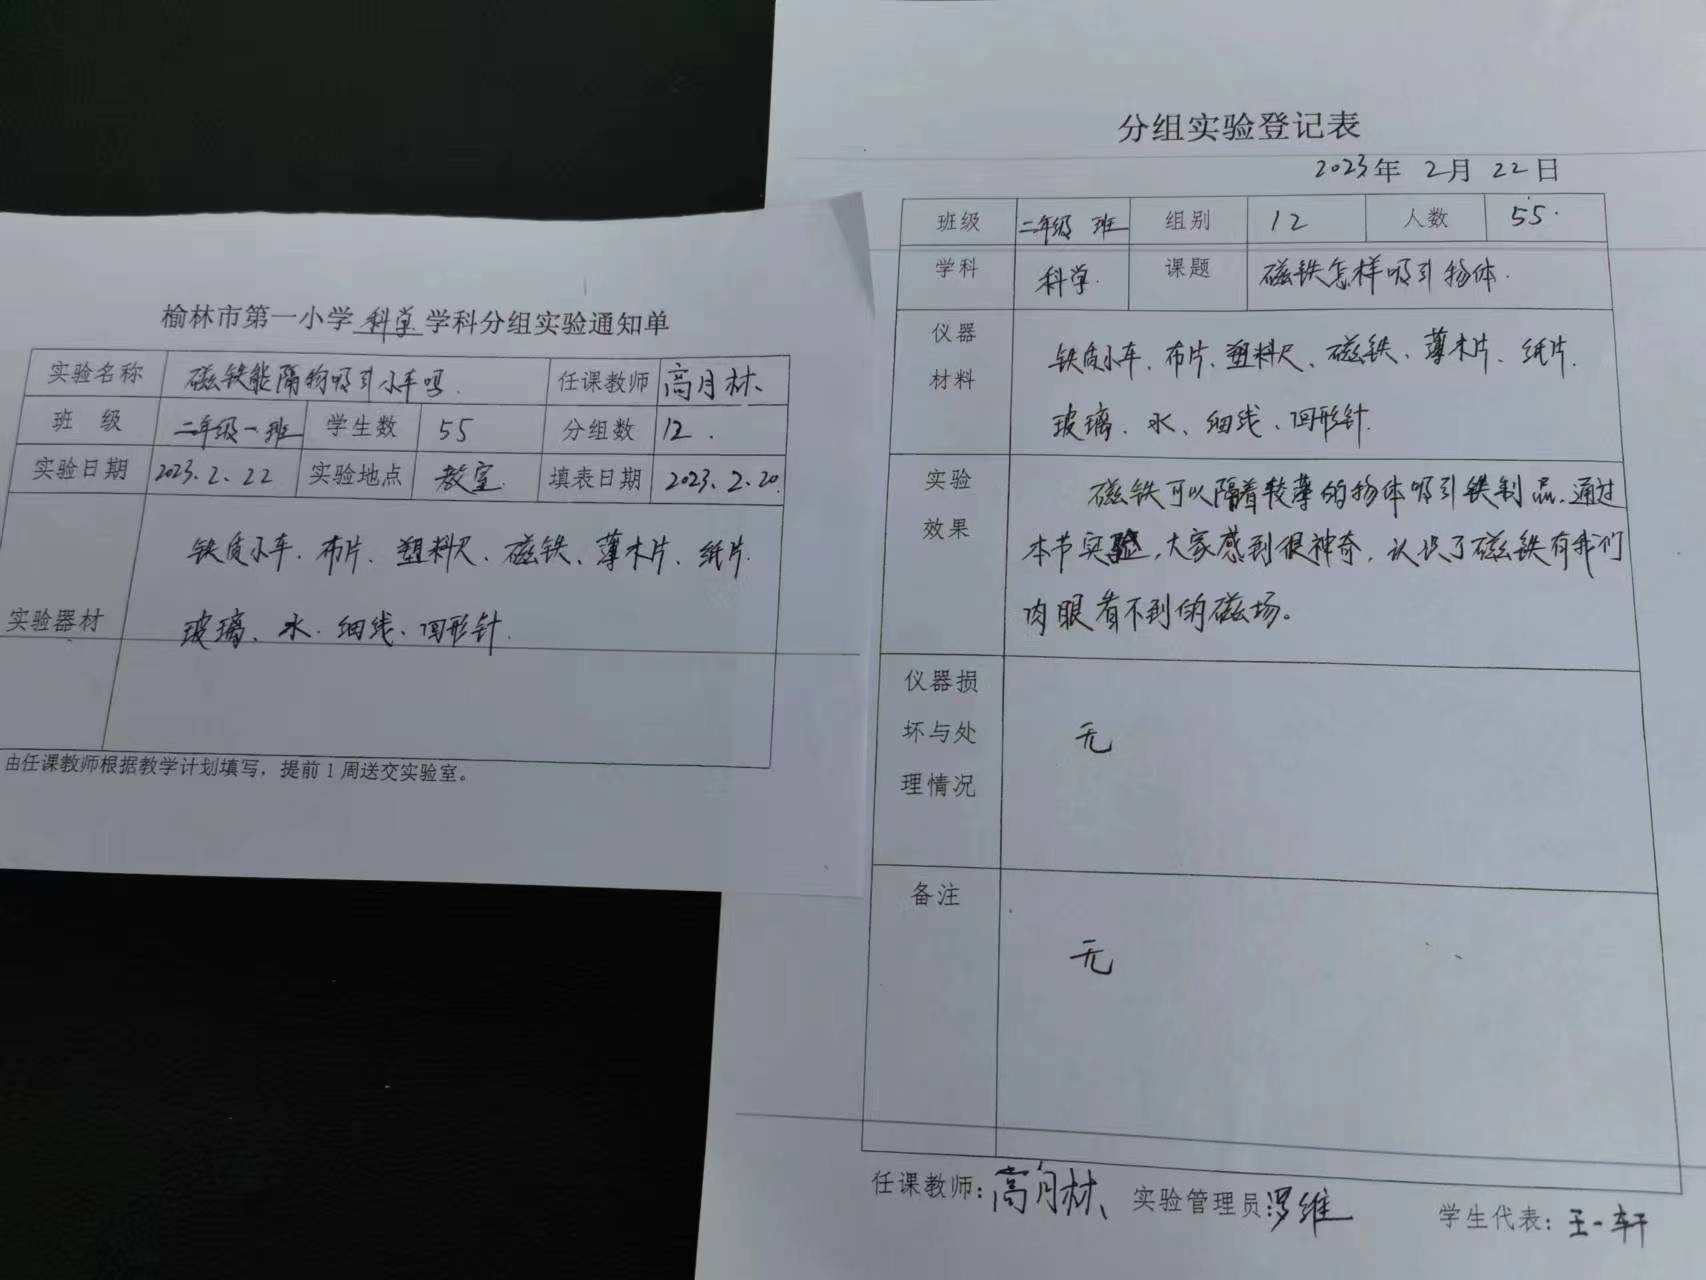 榆林市第一小学 科学 学科分组实验通知单
实验名称 磁铁能隔物吸引小车吗. 任课教师 高月林
班 级 二年级一班 学生数 55 分组数 12.
实验日期 2023.2.22 实验地点 教室. 填表日期 2023.2.20.
铁质小车、布片、塑料尺、磁铁、薄木片、纸片.
实验器材 玻璃、水、细线、回形针.
由任课教师根据教学计划填写，提前1周送交实验室。
分组实验登记表
2023年 2月 22日
班级 二年级 班 组别 12 人数 55.
学科 科学. 课题 磁铁怎样吸引物体.
仪器 铁质小车、布片、塑料尺、磁铁、薄木片、纸片.
材料 玻璃、水、细线、回形针.
实验 磁铁可以隔着较薄的物体吸引铁制品.通过
效果 本节实验,大家感到很神奇,认识了磁铁有我们
肉眼看不到的磁场。
仪器损
坏与处 无
理情况
备注
无
任课教师：高月林 实验管理员：罗维 学生代表：王一轩